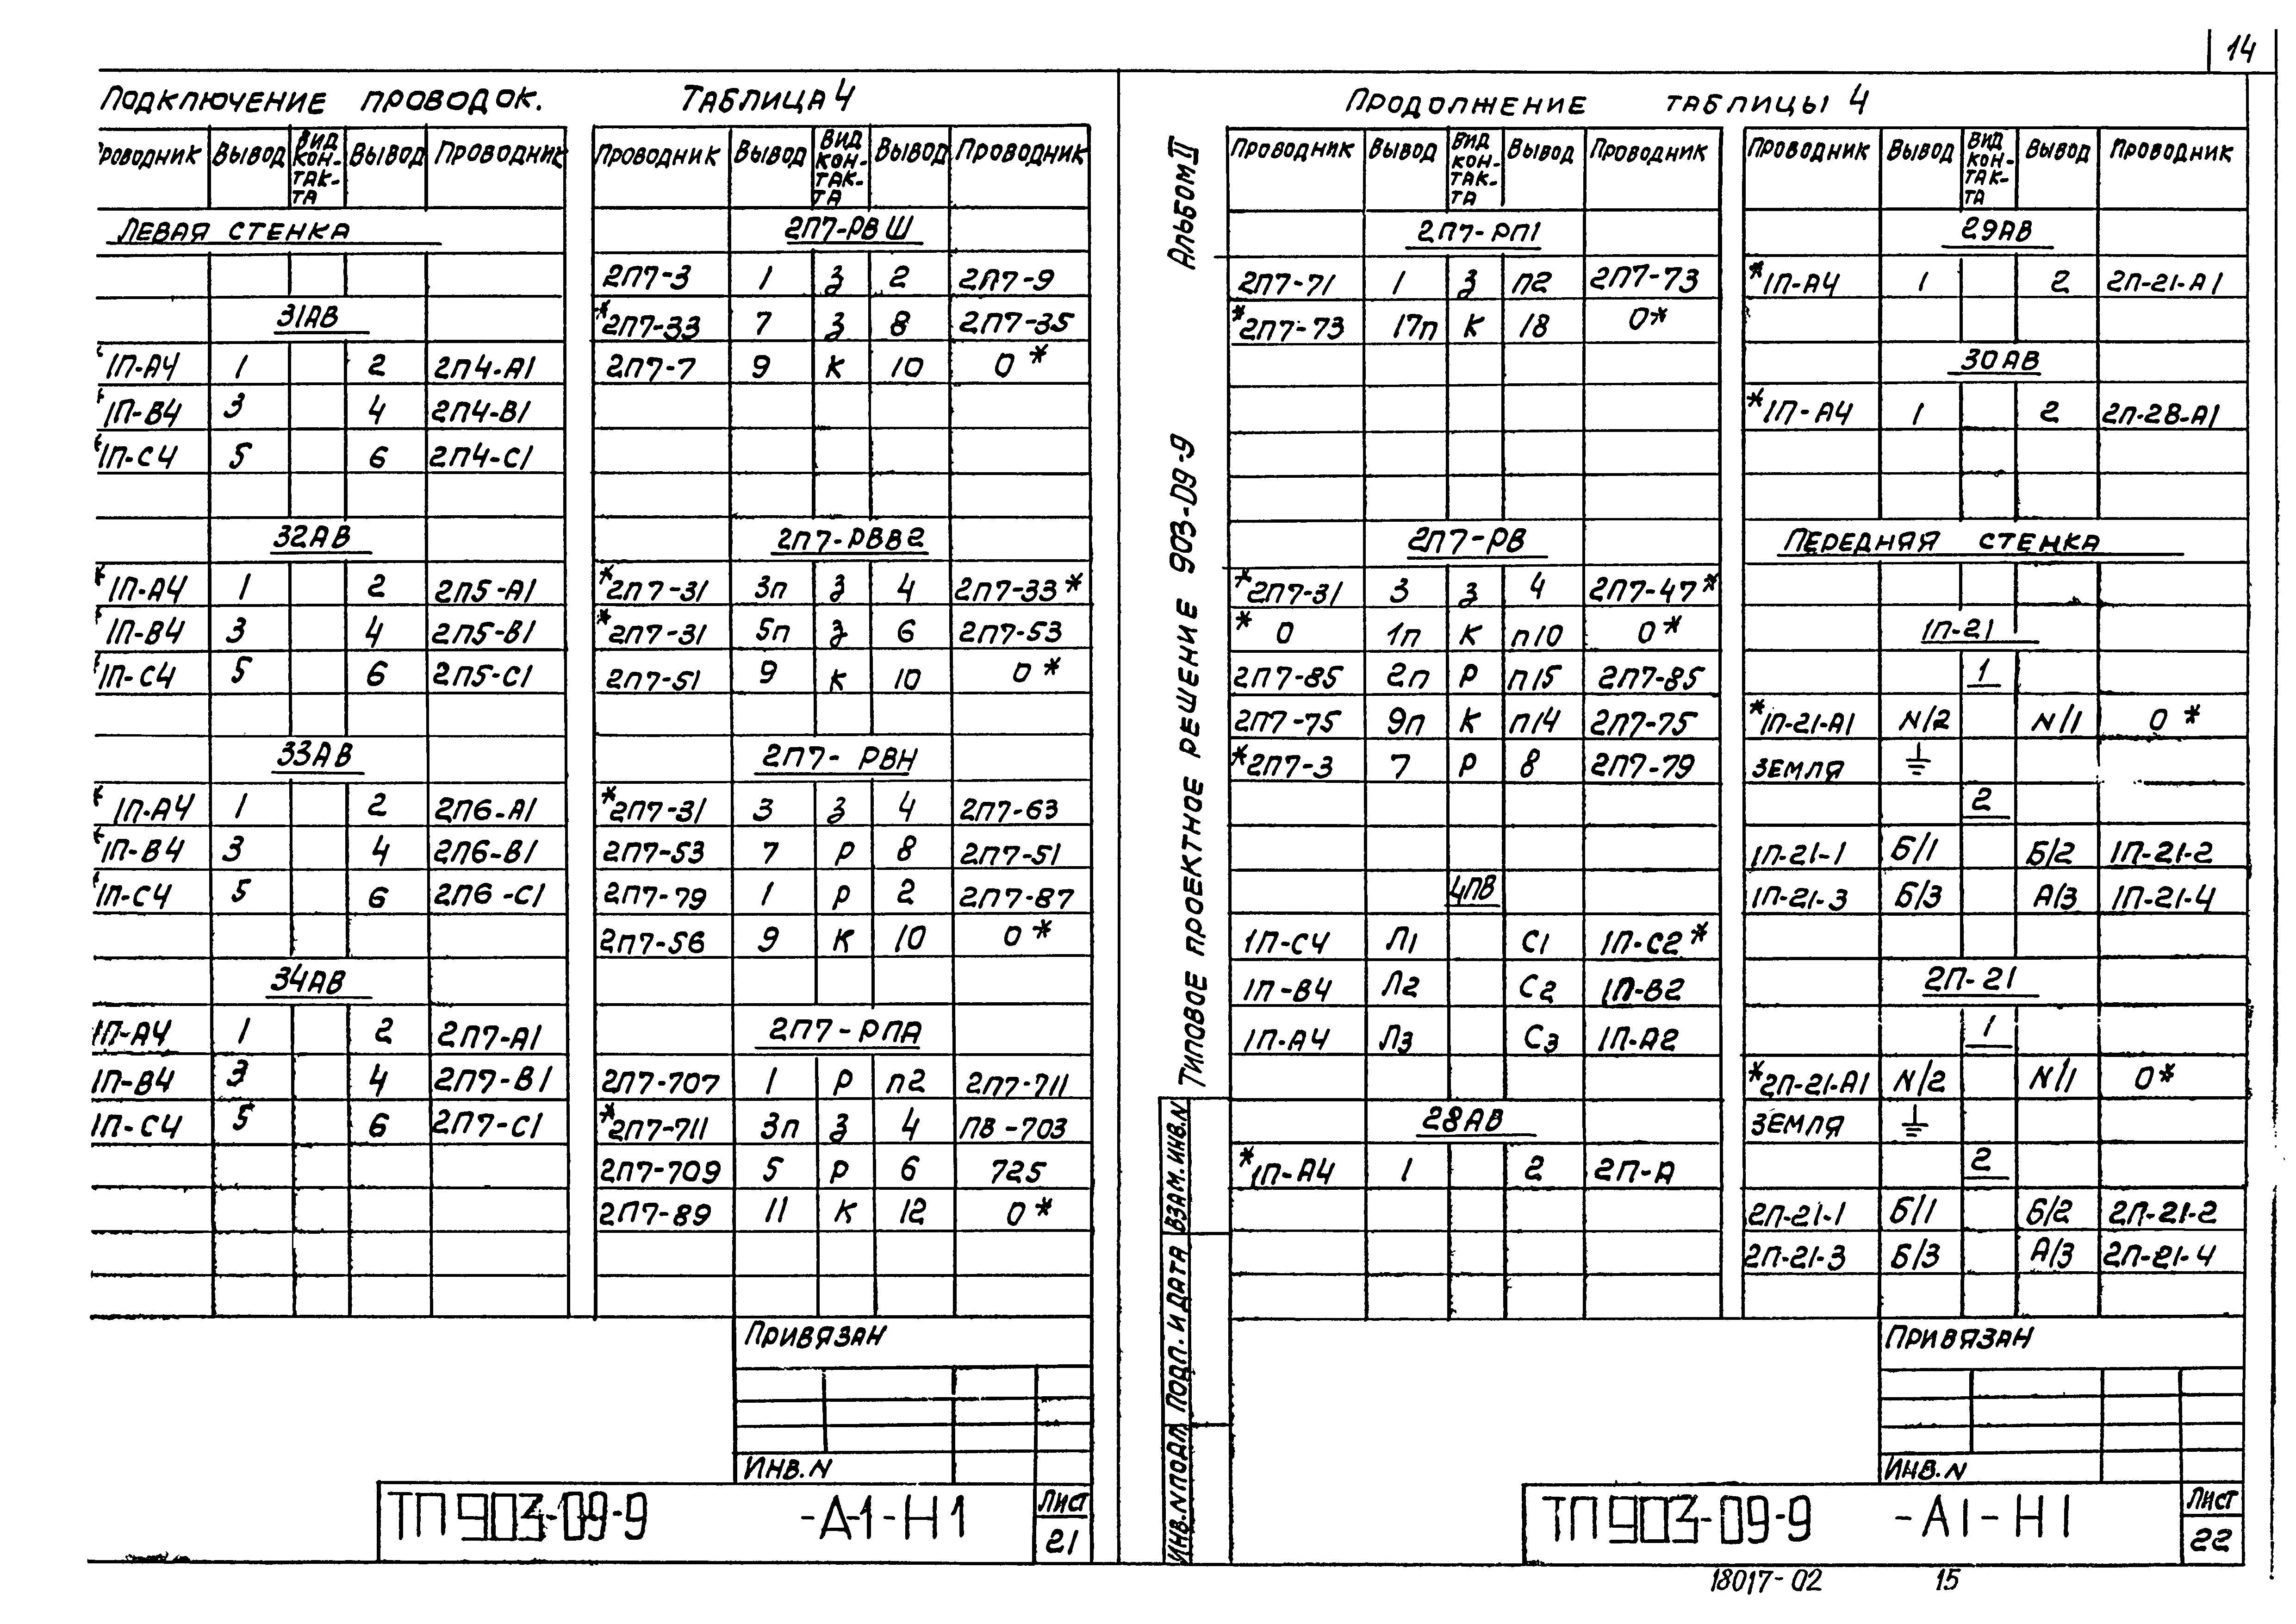 14
Подключение проводок. Таблица 4
Проводник Вывод Вид контакта Вывод Проводник
Левая стенка
31АВ
*1П-А4 1 2 2П4-А1
*1П-В4 3 4 2П4-В1
*1П-С4 5 6 2П4-С1
32АВ
*1П-А4 1 2 2П5-А1
*1П-В4 3 4 2П5-В1
*1П-С4 5 6 2П5-С1
33АВ
*1П-А4 1 2 2П6-А1
*1П-В4 3 4 2П6-В1
*1П-С4 5 6 2П6-С1
34АВ
1П-А4 1 2 2П7-А1
1П-В4 3 4 2П7-В1
1П-С4 5 6 2П7-С1
Проводник Вывод Вид кон-так-та Вывод Проводник
2П7-РВШ
2П7-3 1 З 2 2П7-9
*2П7-33 7 З 8 2П7-35
2П7-7 9 К 10 0*
2П7-РВВ2
*2П7-31 3п З 4 2П7-33*
*2П7-31 5п З 6 2П7-53
2П7-51 9 К 10 0*
2П7-РВН
*2П7-31 3 З 4 2П7-63
2П7-53 7 Р 8 2П7-51
2П7-79 1 Р 2 2П7-87
2П7-56 9 К 10 0*
2П7-РПА
2П7-707 1 Р п2 2П7-711
*2П7-711 3п З 4 ПВ-703
2П7-709 5 Р 6 725
2П7-89 11 К 12 0*
Привязан
Инв.N
ТП 903-09-9 -А-1-Н1
Лист
21
Альбом II
Типовое проектное решение 903-09-9
Взам.инв.N
Подп. и дата
Инв.Nподл
Продолжение таблицы 4
Проводник Вывод Вид кон-так-та Вывод Проводник
2П7-РП1
2П7-71 1 З п2 2П7-73
*2П7-73 17п К 18 0*
2П7-РВ
*2П7-31 3 З 4 2П7-47*
*0 1п К п10 0*
2П7-85 2п Р п15 2П7-85
2П7-75 9п К п14 2П7-75
*2П7-3 7 Р 8 2П7-79
4ПВ
1П-С4 Л1 С1 1П-С2*
1П-В4 Л2 С2 1П-В2
1П-А4 Л3 С3 1П-А2
28АВ
*1П-А4 1 2 2П-А
Проводник Вывод Вид кон-так-та Вывод Проводник
29АВ
*1П-А4 1 2 2П-21-А1
30АВ
*1П-А4 1 2 2П-28-А1
Передняя стенка
1П-21
1
*1П-21-А1 N/2 N/1 0*
Земля ⏚
2
1П-21-1 Б/1 Б/2 1П-21-2
1П-21-3 Б/3 А/3 1П-21-4
2П-21
1
*2П-21-А1 N/2 N/1 0*
Земля ⏚
2
2П-21-1 Б/1 Б/2 2П-21-2
2П-21-3 Б/3 А/3 2П-21-4
Привязан
Инв.N
ТП 903-09-9 -А1-Н1
Лист
22
18017-02 15